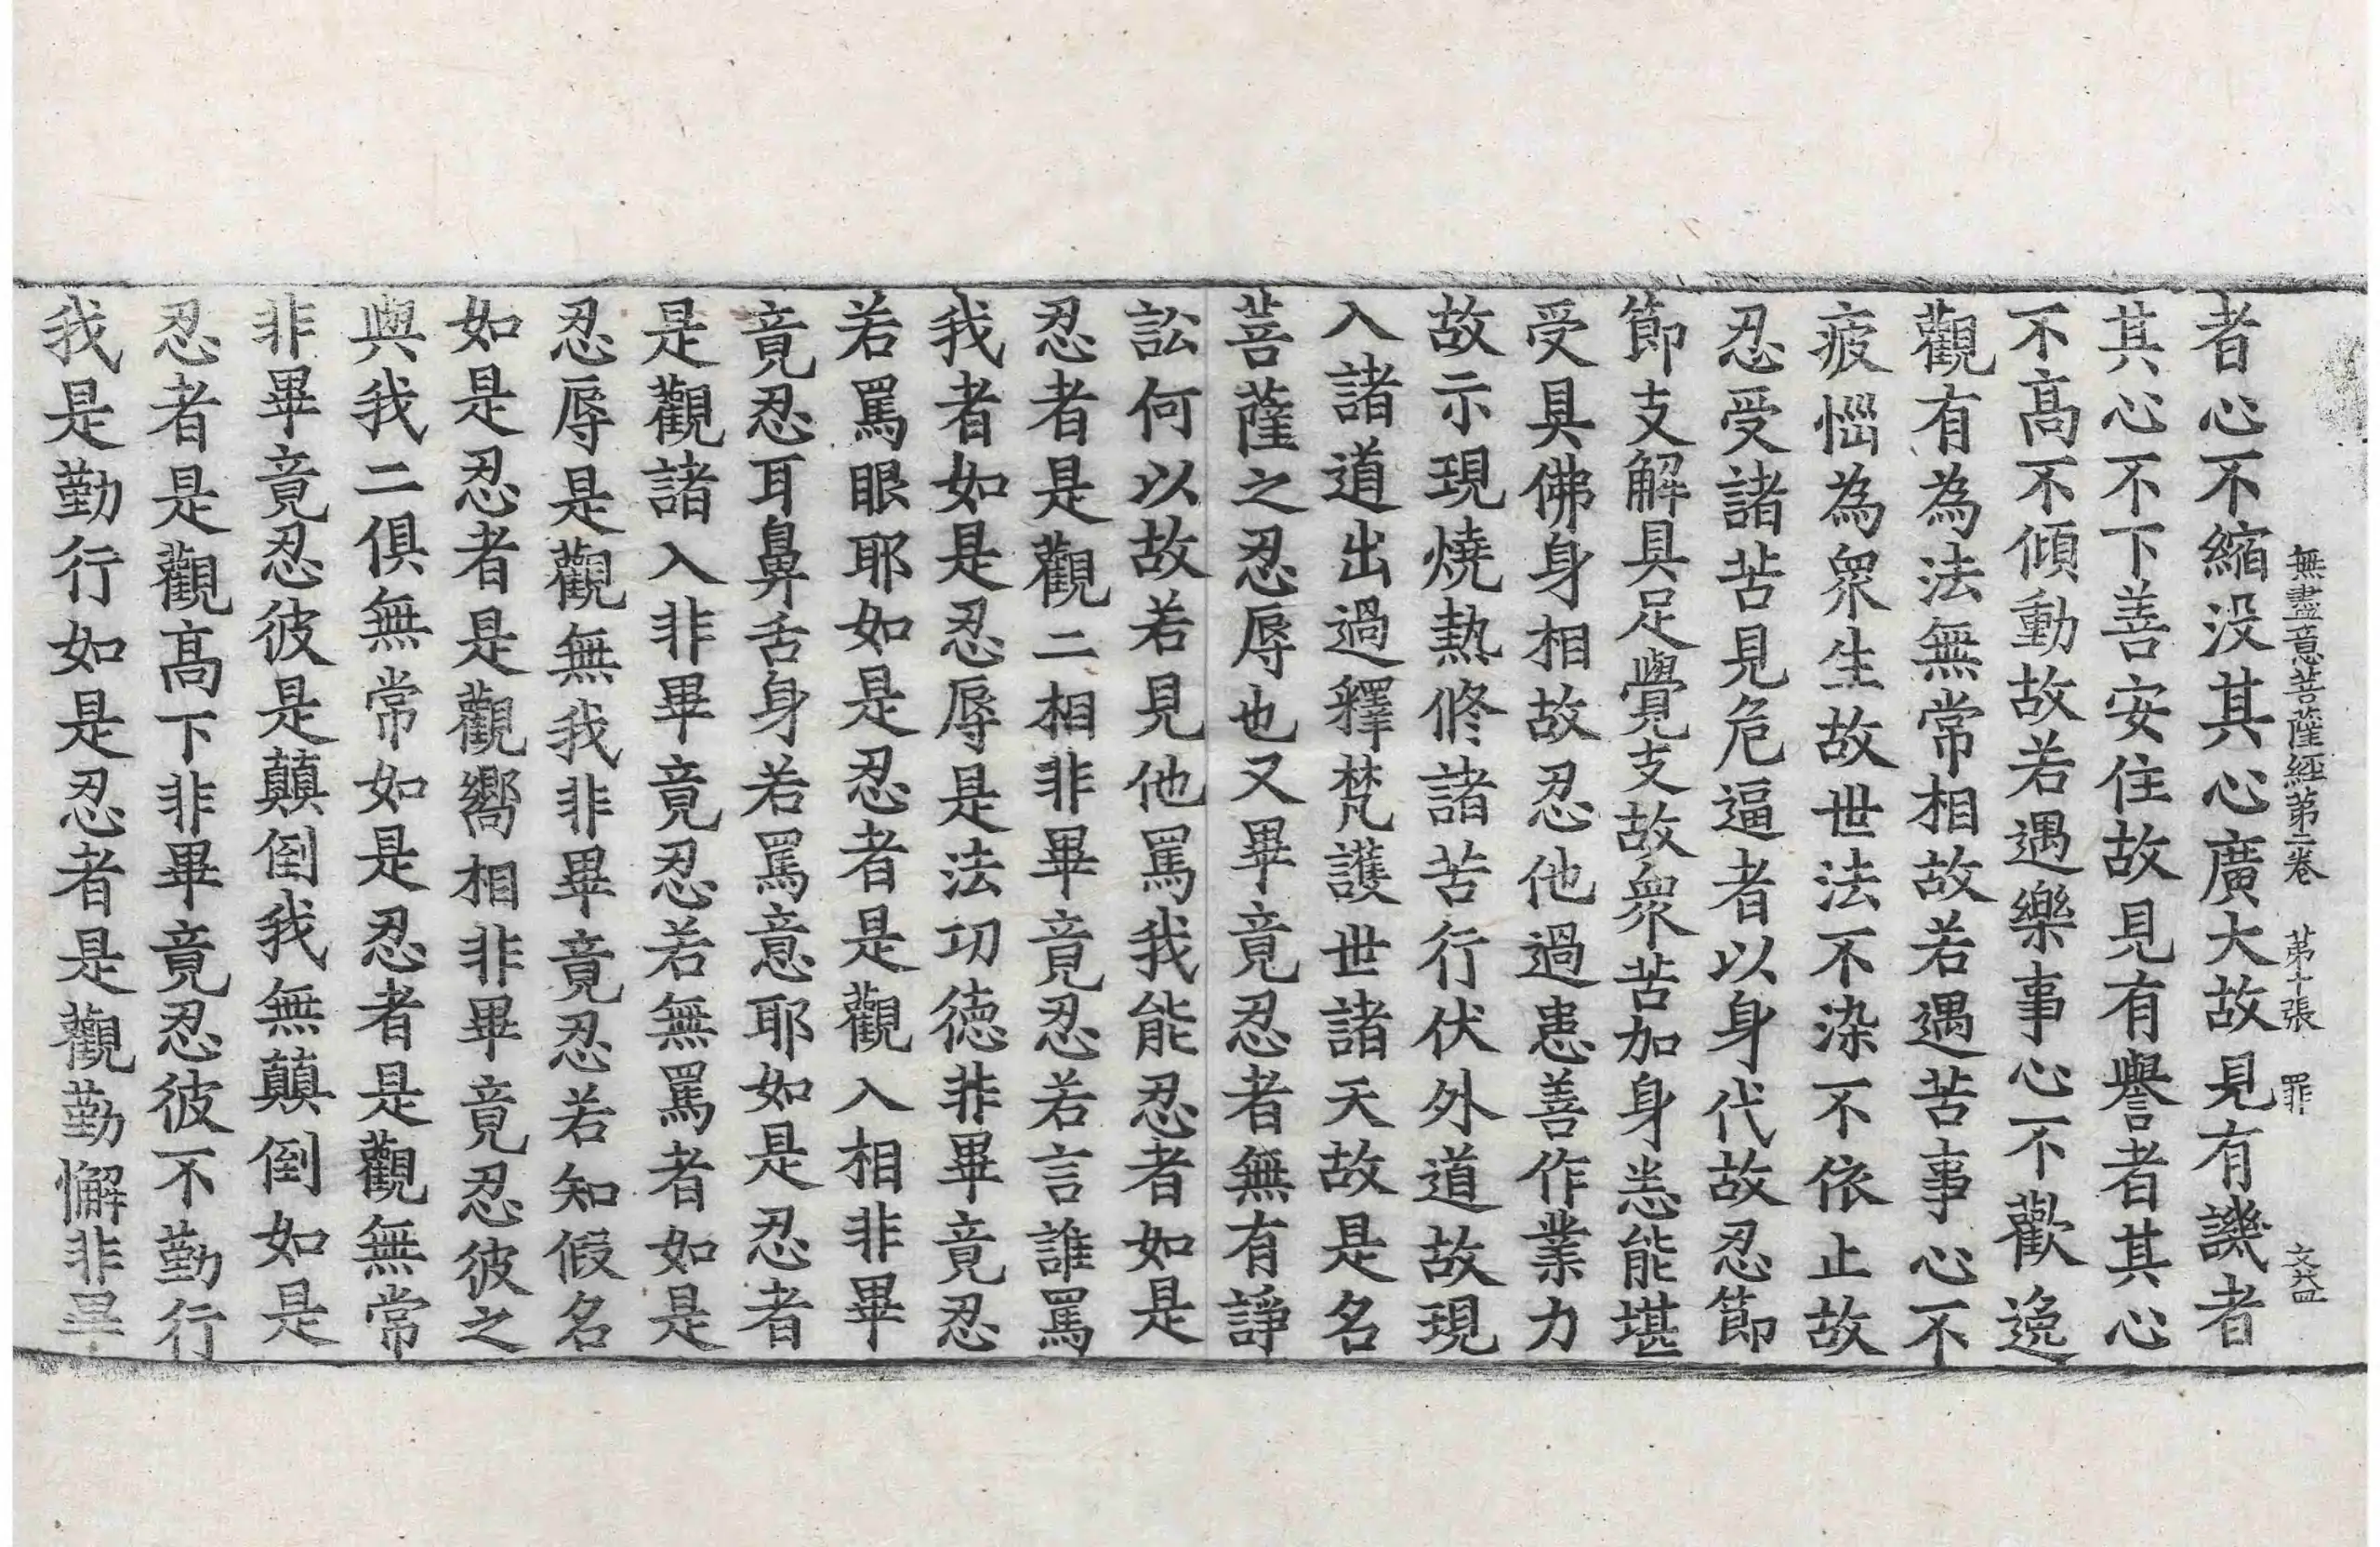 無盡意菩薩經第二卷 第十張 罪
者心不縮没其心廣大故見有譏者
其心不下善安住故見有譽者其心
不髙不傾動故若遇樂事心不歡逸
觀有為法無常相故若遇苦事心不
疲惱為衆生故世法不染不依止故
忍受諸苦見危逼者以身代故忍節
節支解具足覺支故衆苦加身恙能堪
受具佛身相故忍他過患善作業力
故示現燒熱修諸苦行伏外道故現
入諸道出過釋梵護世諸天故是名
菩薩之忍辱也又畢竟忍者無有諍
訟何以故若見他罵我能忍者如是
忍者是觀二相非畢竟忍若言誰罵
我者如是忍辱是法功德非畢竟忍
若罵眼耶如是忍者是觀入相非畢
竟忍耳鼻舌身若罵意耶如是忍者
是觀諸入非畢竟忍若無罵者如是
忍辱是觀無我非畢竟忍若知假名
如是忍者是觀嚮相非畢竟忍彼之
與我二俱無常如是忍者是觀無常
非畢竟忍彼是顛倒我無顛倒如是
忍者是觀髙下非畢竟忍彼不勤行
我是勤行如是忍者是觀勤懈非畢